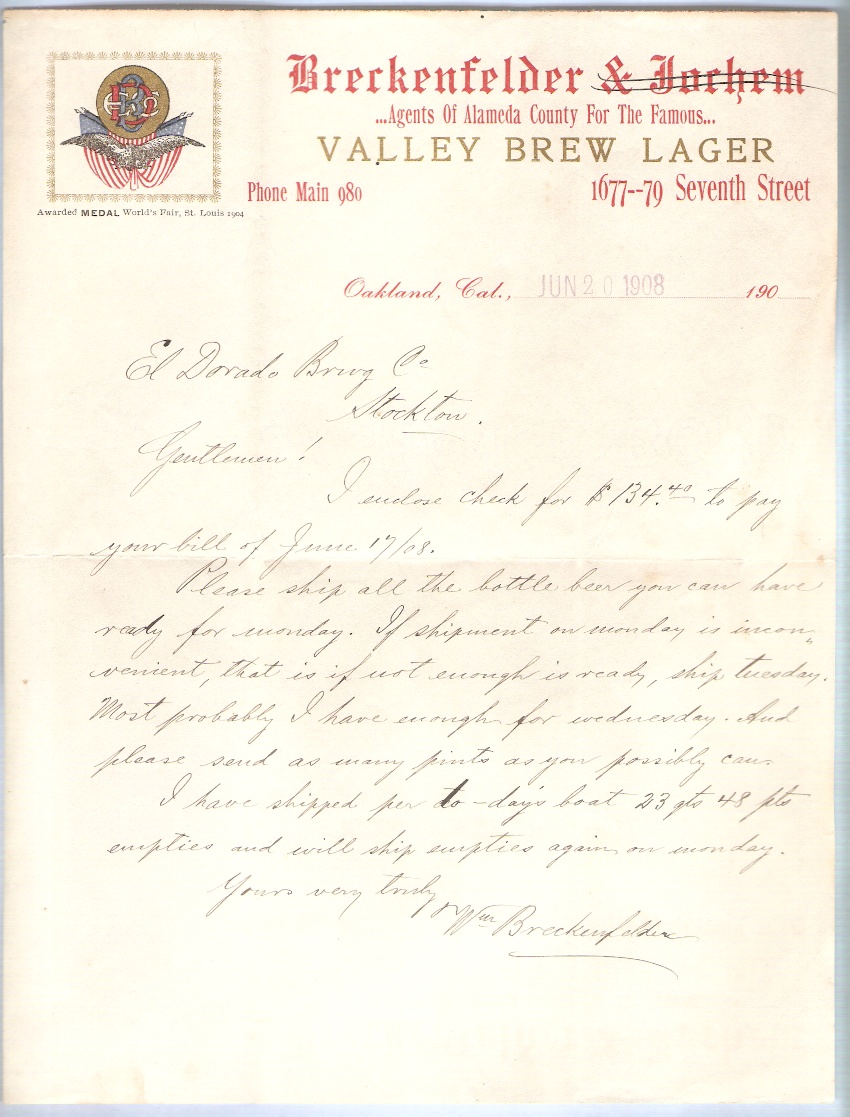 Breckenfelder & Jochem
...Agents Of Alameda County For The Famous...
VALLEY BREW LAGER
Phone Main 980
1677--79 Seventh Street
Awarded MEDAL World's Fair, St. Louis 1904
Oakland, Cal., JUN 20 1908 190
El Dorado Brwg Co
Stockton.
Gentlemen!
I enclose check for $134.40 to pay
your bill of June 17/08.
Please ship all the bottle beer you can have
ready for monday. If shipment on monday is incon"
venient, that is if not enough is ready, ship tuesday.
Most probably I have enough for wednesday. And
please send as many pints as you possibly can.
I have shipped per to-day's boat 23 qts 48 pts
empties and will ship empties again on monday.
Yours very truly
Wm Breckenfelder